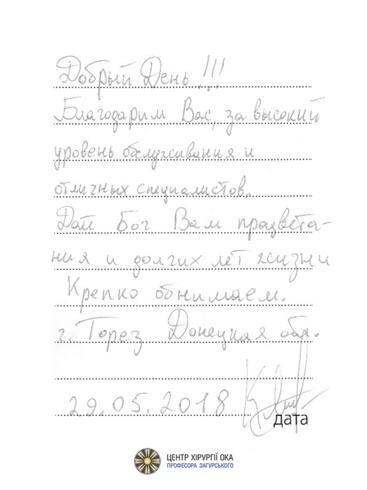 Добрый День !!!
Благодарим Вас, за высокий
уровень обслуживания и
отличных специалистов.
Дай Бог Вам процвета-
ния и долгих лет жизни
Крепко обнимаем.
г. Торез Донецкая обл.
29.05.2018
дата
ЦЕНТР ХІРУРГІЇ ОКА
ПРОФЕСОРА ЗАГУРСЬКОГО